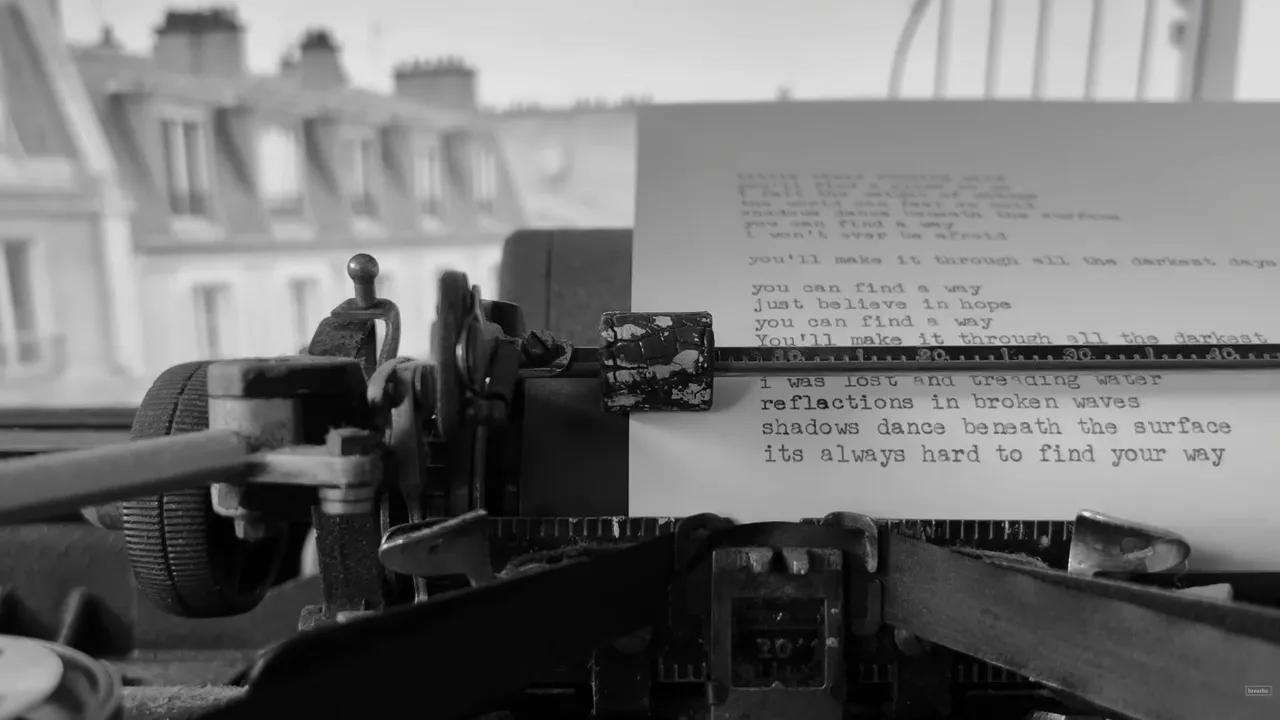 the world can feel so cold
shadows dance beneath the surface
you can find a way
i won't ever be afraid
you'll make it through all the darkest days
you can find a way
just believe in hope
you can find a way
You'll make it through all the darkest
20 30 40
i was lost and treading water
reflections in broken waves
shadows dance beneath the surface
its always hard to find your way
20"
breathe